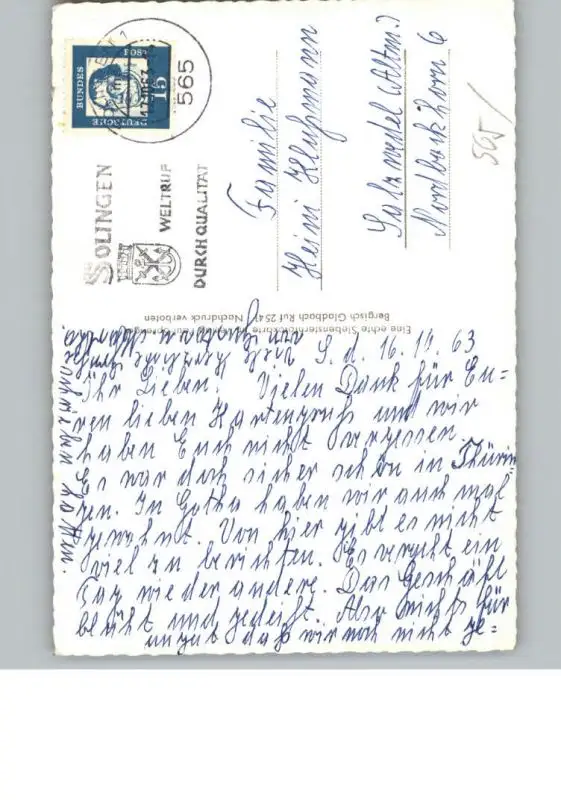 DEUTSCHE
BUNDES
POST
15
565
SOLINGEN
WELTRUF
DURCH QUALITÄT
Familie
Heini
Salzwedel (Altm.)
Nordbockhorn 6
565/
Eine echte Siebensternfotokarte
Bergisch Gladbach Ruf 2541 Nachdruck verboten
S. d. 16.11.63
Ihr Lieben. Vielen Dank für Eu=
ren lieben Kartengruß und wir
haben Euch nicht vergessen.
Es war doch sicher schön in Thürin
gen. In Gotha haben wir auch mal
gewohnt. Von hier gibt es nicht
viel zu berichten. Es vergeht ein
Tag wie der andere. Das Geschäft
blüht und gedeiht. Also nichts für
ungut daß wir noch nicht ge=